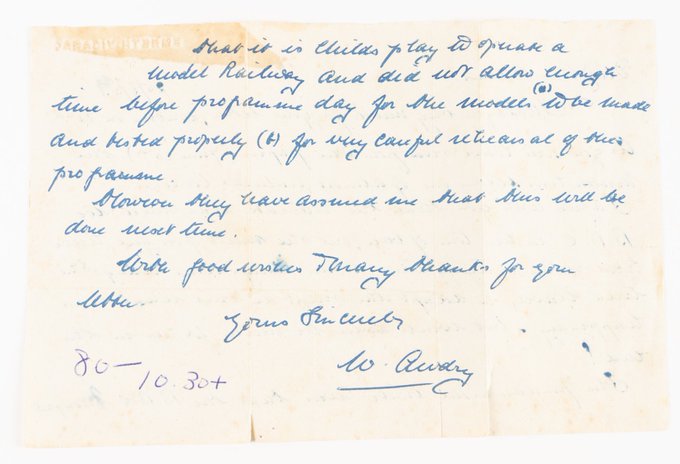 that it is childs play to operate a
Model Railway and did not allow enough
time before programme day for the models (a) to be made
and tested properly (b) for very careful rehearsal of the
programme.
However they have assured me that this will be
done next time.
With good wishes & many thanks for your
letter.
Yours Sincerely
W. Awdry
80—
10.30+